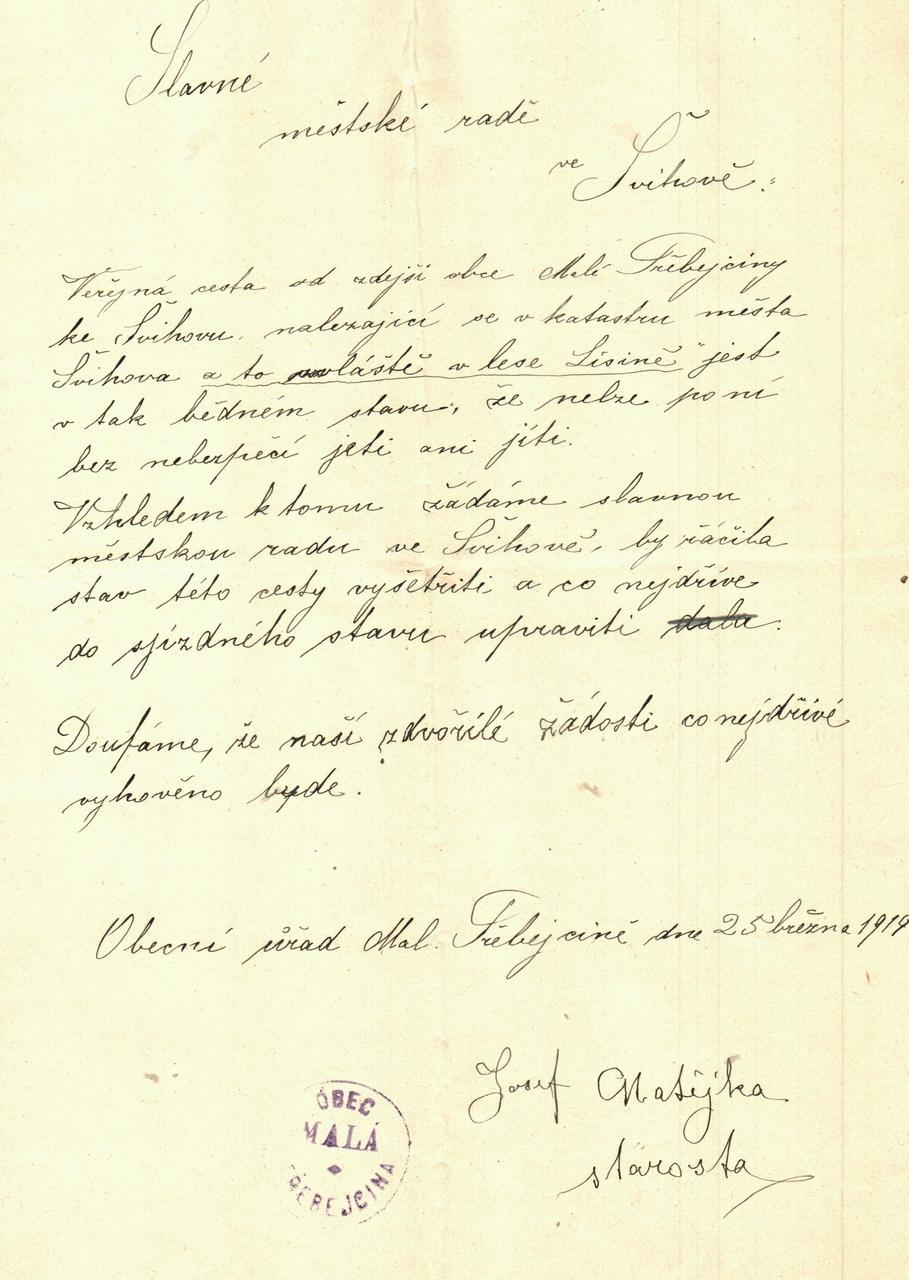 Slavné
městské radě
ve Švihově:
Veřejná cesta od zdejší obce Malé Třebejciny
ke Švihovu, nalezající se v katastru města
Švihova a to zvláště v lese Lisině" jest
v tak bědném stavu, že nelze po ní
bez nebezpečí jeti ani jíti.
Vzhledem k tomu žádáme slavnou
městskou radu ve Švihově, by ráčila
stav této cesty vyšetřiti a co nejdříve
do sjízdného stavu upraviti dala.
Doufáme, že naší zdvořilé žádosti co nejdříve
vyhověno bude.
Obecní úřad Mal. Třebejcině dne 25 března 1919
Josef Matějka
starosta
OBEC
MALÁ
TŘEBEJCINA